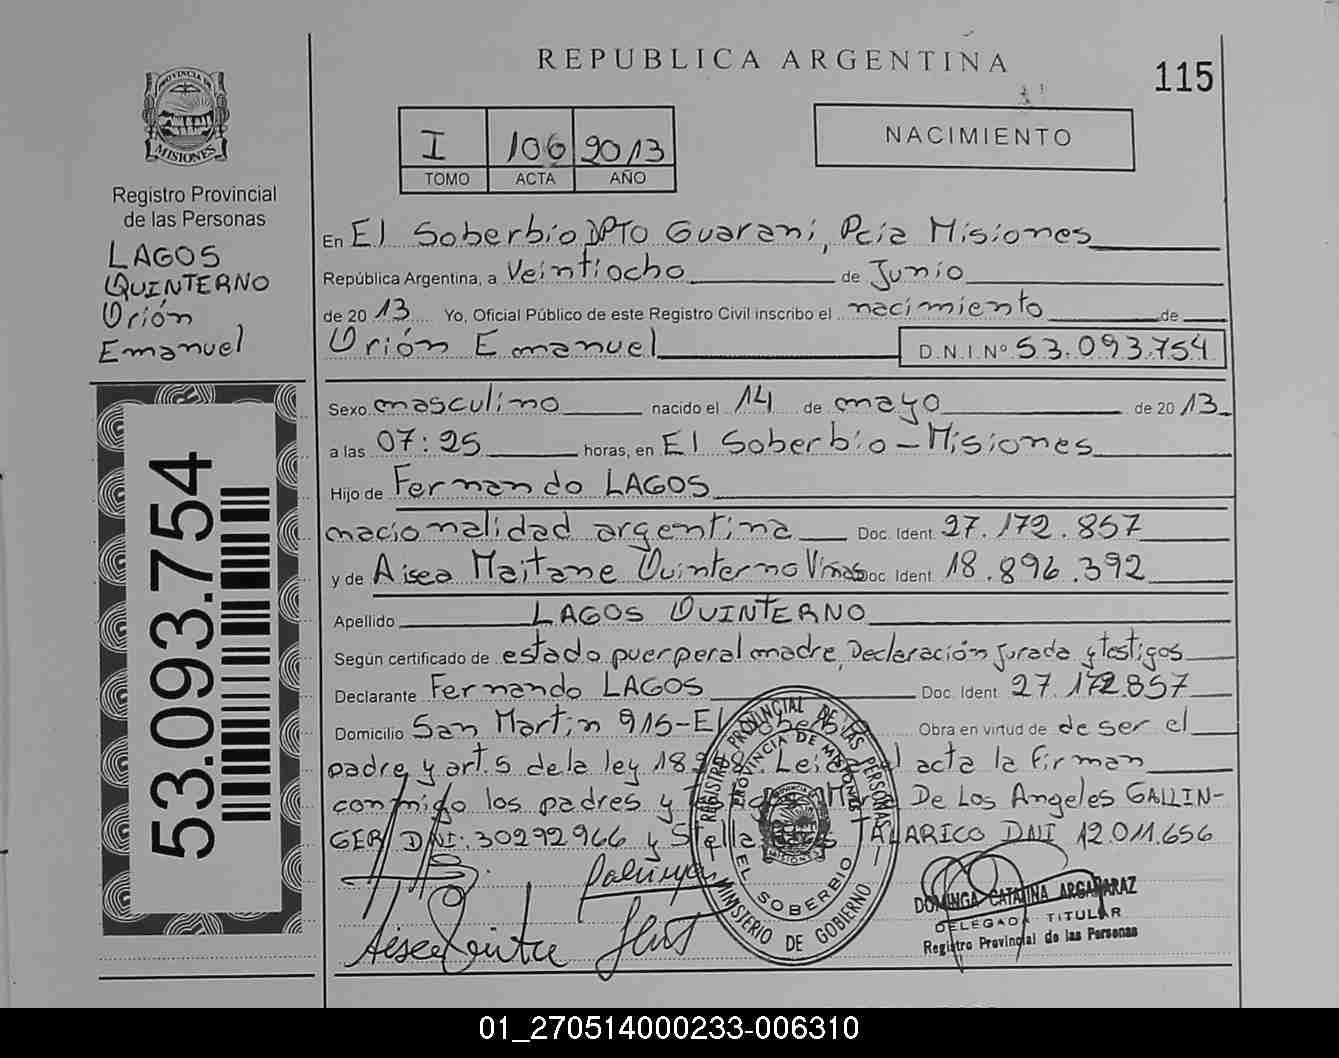 REPUBLICA ARGENTINA
115
PROVINCIA DE
MISIONES
Registro Provincial
de las Personas
LAGOS
QUINTERNO
Orión
Emanuel
53.093.754
I 106 2013
TOMO ACTA AÑO
NACIMIENTO
En El Soberbio DPTO Guarani, Pcia Misiones
República Argentina, a Veintiocho de Junio
de 2013 Yo, Oficial Público de este Registro Civil inscribo el nacimiento de
Orión Emanuel D.N.I.Nº 53.093.754
Sexo masculino nacido el 14 de mayo de 2013
a las 07:25 horas, en El Soberbio - Misiones
Hijo de Fernando LAGOS
nacionalidad argentina Doc. Ident. 27.172.857
y de Aisea Maitane Quinterno Viñas Doc Ident 18.896.392
Apellido LAGOS QUINTERNO
Según certificado de estado puerperal madre, Declaración jurada y testigos
Declarante Fernando LAGOS Doc. Ident. 27.172.857
Domicilio San Martin 915-El Obra en virtud de de ser el
padre y art. 5 de la ley 18 acta la firman
conmigo los padres y De Los Angeles GALLIN-
GER DNI: 30292966 y Stella TALARICO DNI 12.011.656
REGISTRO PROVINCIAL DE LAS PERSONAS
PROVINCIA DE MISIONES
MISIONES
EL SOBERBIO
MINISTERIO DE GOBIERNO
DOMINGA CATALINA ARGAÑARAZ
DELEGADA TITULAR
Registro Provincial de las Personas
01_270514000233-006310